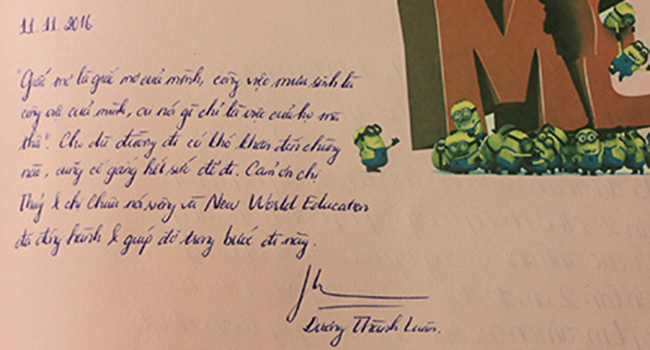 11.11.2016
ME
"Giấc mơ là giấc mơ của mình, công việc mưu sinh là
công việc của mình, ai nói gì chỉ là việc của họ mà
thôi". Cho dù đường đi có khó khăn đến chừng
nào, cũng cố gắng hết sức để đi. Cảm ơn chị
Thuý & chị Châu nói riêng và New World Education
đã đồng hành & giúp đỡ trong bước đi này.
Dương Thành Luân.